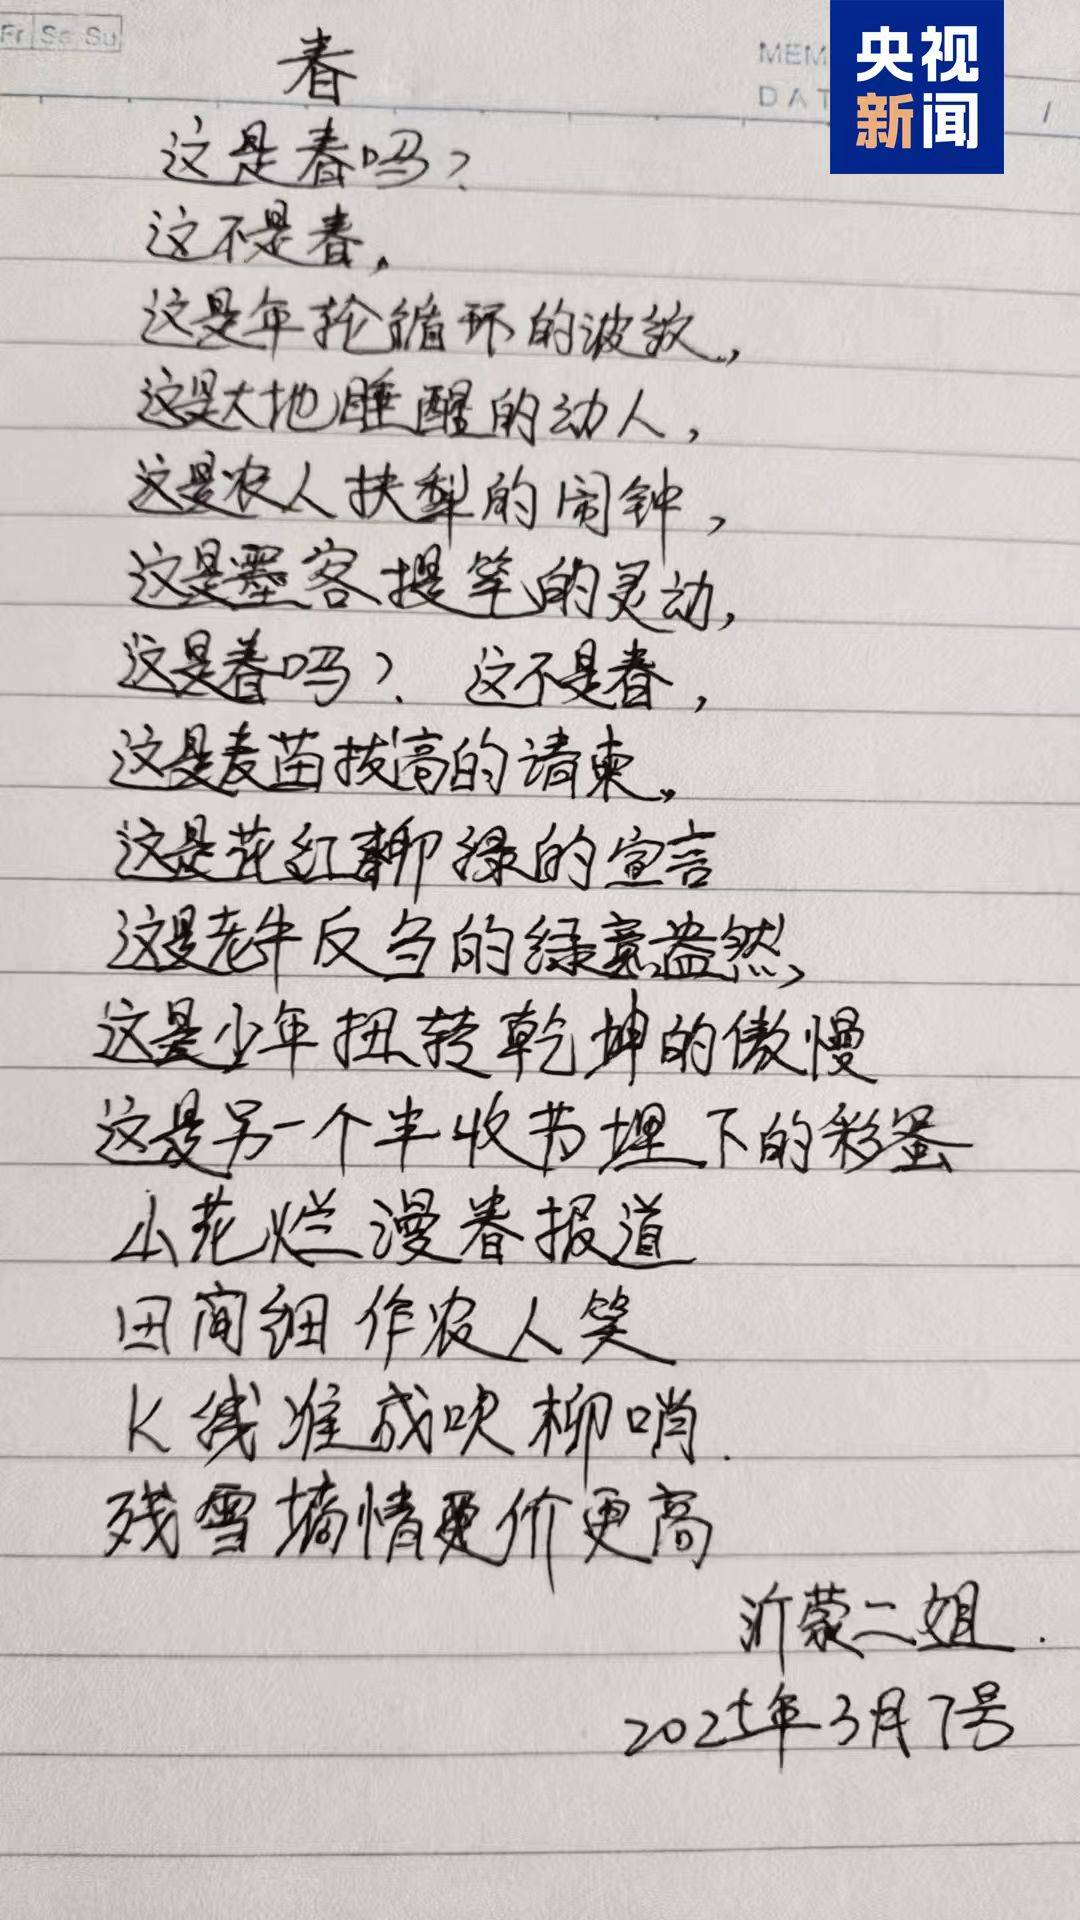 Fr Sa Su
MEM
DAT
央视
新闻
春
这是春吗？
这不是春，
这是年轮循环的波纹，
这是大地睡醒的动人，
这是农人扶犁的闹钟，
这是墨客提笔的灵动，
这是春吗？ 这不是春，
这是麦苗拔高的请柬。
这是花红柳绿的宣言
这是老牛反刍的绿意盎然，
这是少年扭转乾坤的傲慢
这是另一个丰收节埋下的彩蛋
小花烂漫春报道
田间细作农人笑
K线准成吹柳哨.
残雪墒情更价更高
沂蒙二姐.
2025年3月7号